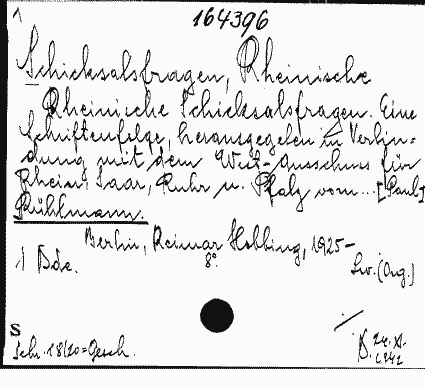 1
164396
Schicksalsfragen, Rheinische
Rheinische Schicksalsfragen. Eine
Schriftenfolge, herausgegeben in Verbin-
dung mit dem West-Ausschuss für
Rhein, Saar, Ruhr u. Pfalz vom ... [Paul]
Rühlmann.
Berlin, Reimar Hobbing, 1925-
8°.
1 Bde. Lw. (Org.)
S
Schr. 18/20=Gesch.